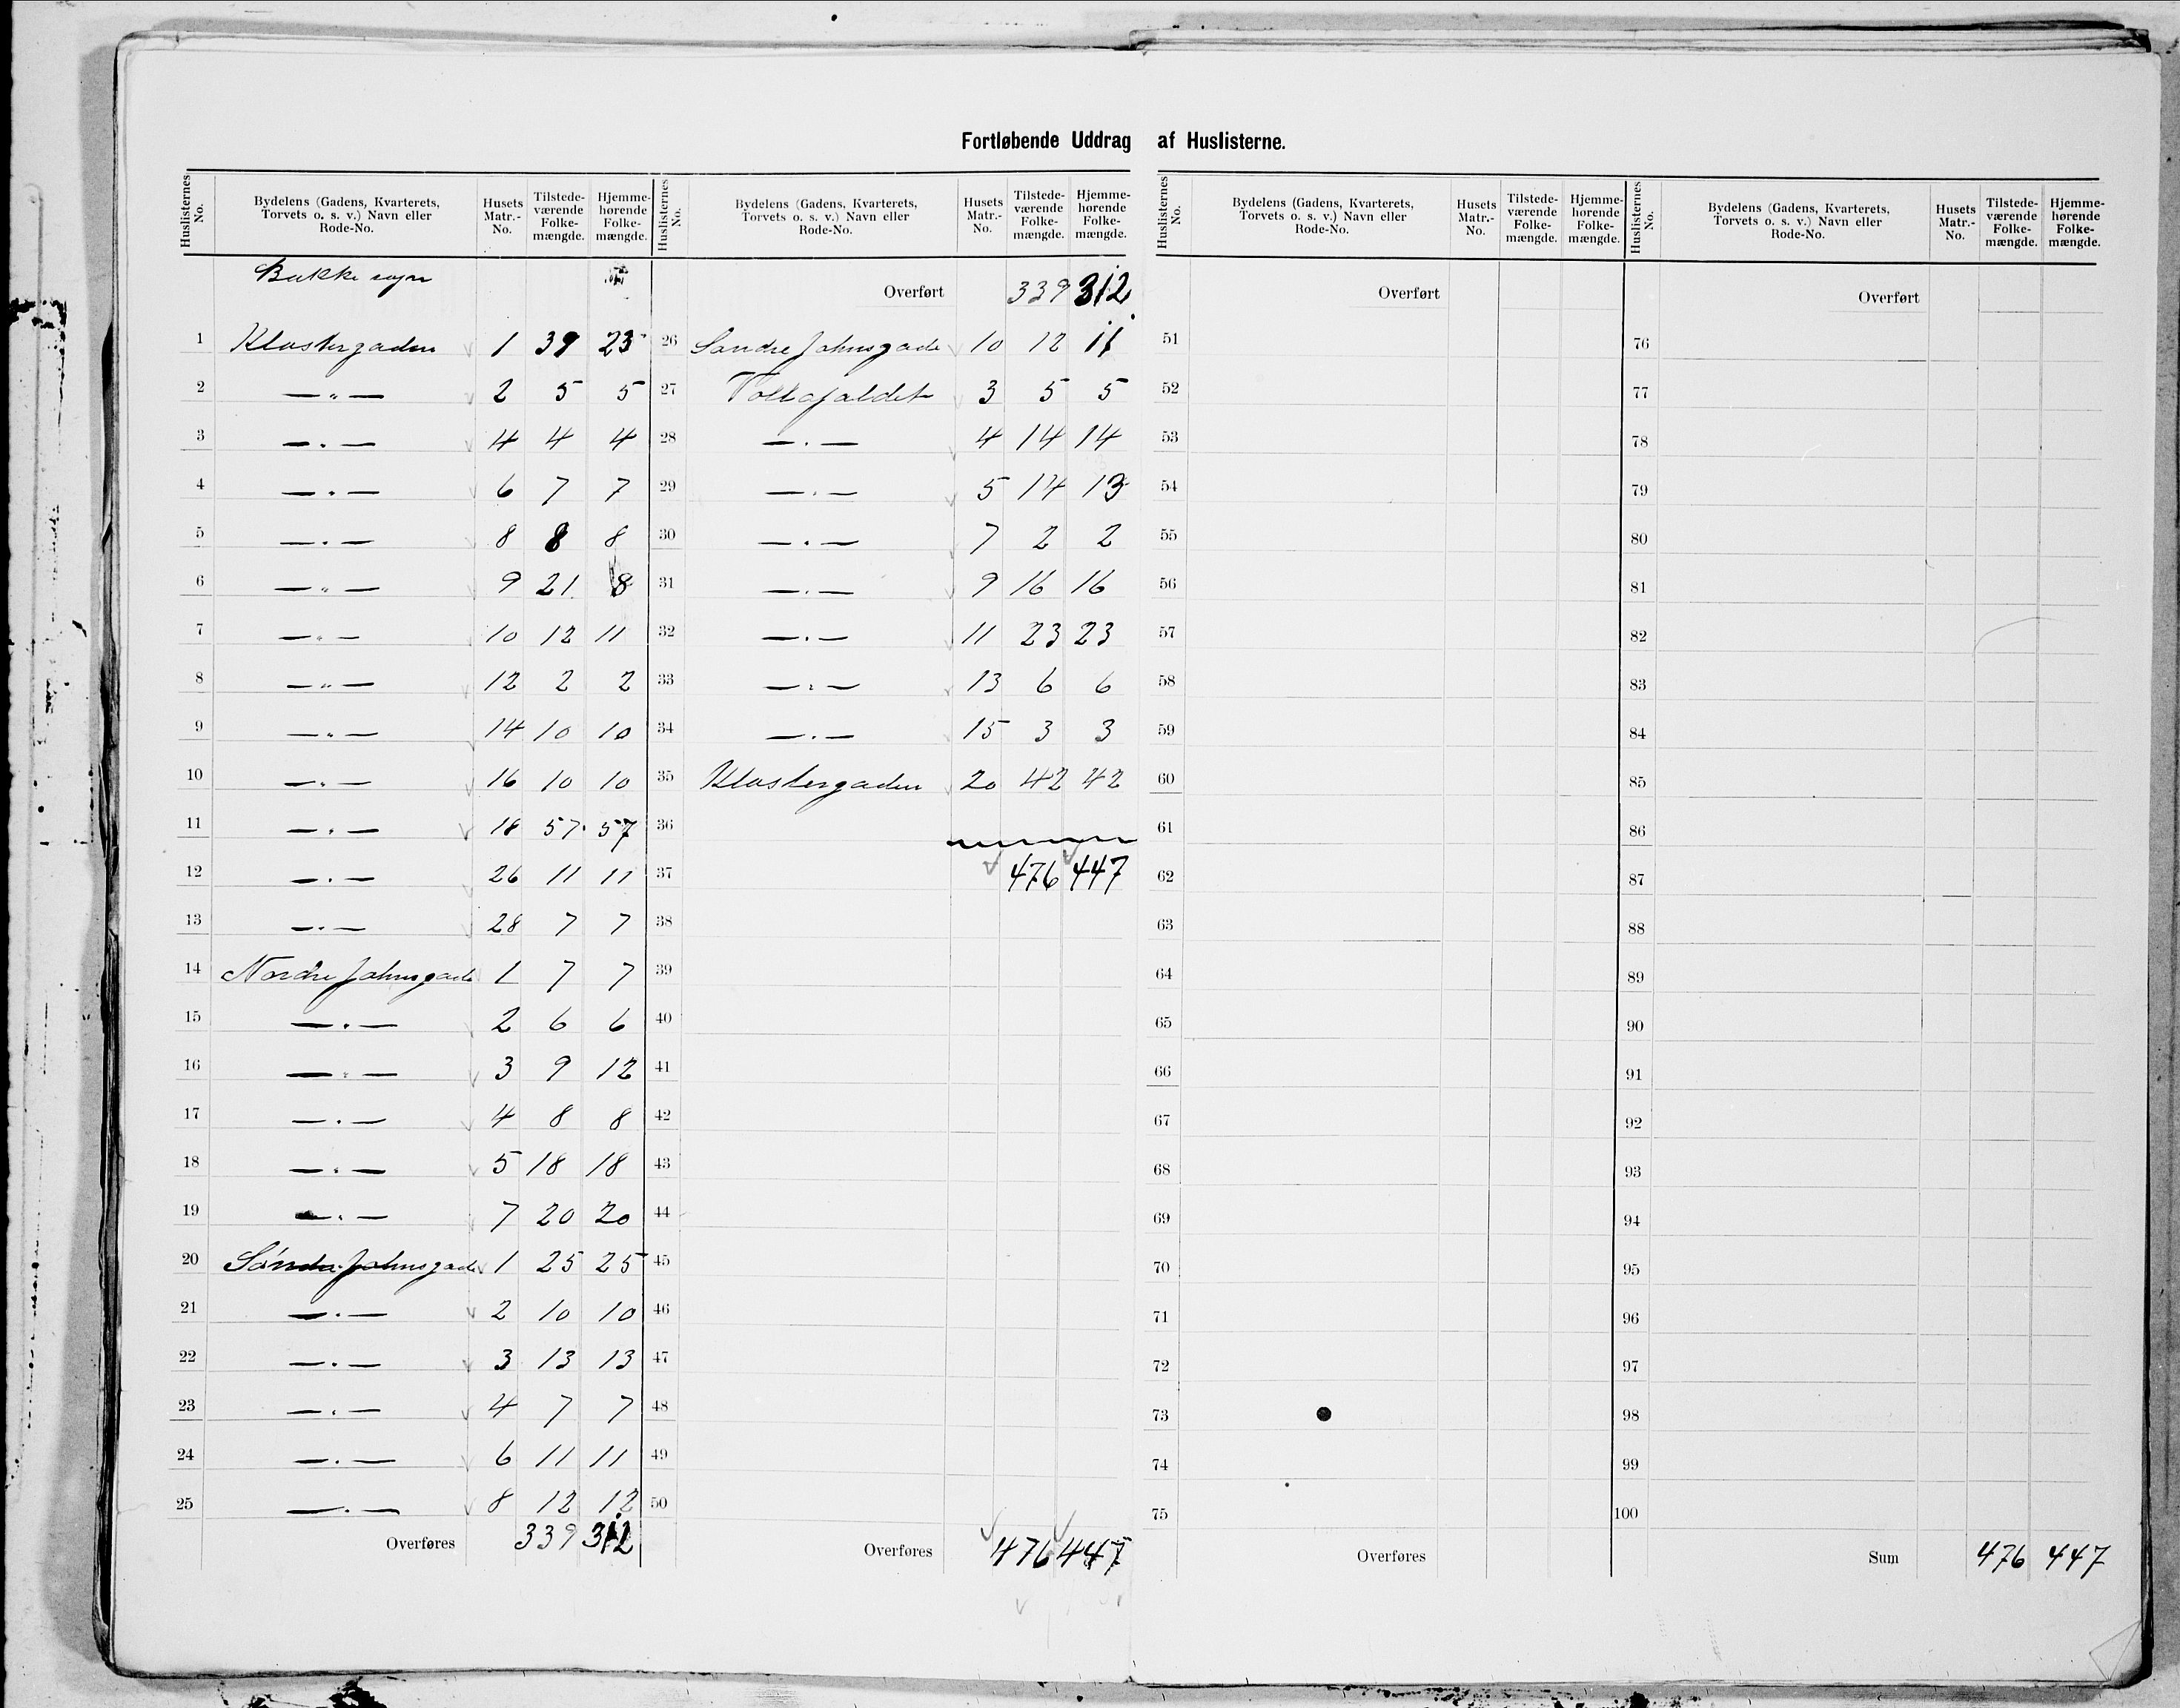 Fortløbende Uddrag af Huslisterne.
Huslisternes No. Bydelens (Gadens, Kvarterets, Torvets o. s. v.) Navn eller Rode-No. Husets Matr.-No. Tilstede-værende Folke-mængde. Hjemme-hørende Folke-mængde.
Bakke sogn
1 Klostergaden 1 39 23
2 —"— 2 5 5
3 —"— 4 4 4
4 —"— 6 7 7
5 —"— 8 8 8
6 —"— 9 21 8
7 —"— 10 12 11
8 —"— 12 2 2
9 —"— 14 10 10
10 —"— 16 10 10
11 —"— 18 57 57
12 —"— 26 11 11
13 —"— 28 7 7
14 Nordre Johnsgade 1 7 7
15 —"— 2 6 6
16 —"— 3 9 12
17 —"— 4 8 8
18 —"— 5 18 18
19 —"— 7 20 20
20 Søndre Johnsgade 1 25 25
21 —"— 2 10 10
22 —"— 3 13 13
23 —"— 4 7 7
24 —"— 6 11 11
25 —"— 8 12 12
Overføres 339 312
Huslisternes No. Bydelens (Gadens, Kvarterets, Torvets o. s. v.) Navn eller Rode-No. Husets Matr.-No. Tilstede-værende Folke-mængde. Hjemme-hørende Folke-mængde.
Overført 339 312
26 Søndre Johnsgade 10 12 11
27 3 5 5
28 —"— 4 14 14
29 —"— 5 14 13
30 —"— 7 2 2
31 —"— 9 16 16
32 —"— 11 23 23
33 —"— 13 6 6
34 —"— 15 3 3
35 Klostergaden 20 42 42
36
37 476 447
38
39
40
41
42
43
44
45
46
47
48
49
50
Overføres 476 447
Huslisternes No. Bydelens (Gadens, Kvarterets, Torvets o. s. v.) Navn eller Rode-No. Husets Matr.-No. Tilstede-værende Folke-mængde. Hjemme-hørende Folke-mængde.
Overført
51
52
53
54
55
56
57
58
59
60
61
62
63
64
65
66
67
68
69
70
71
72
73
74
75
Overføres
Huslisternes No. Bydelens (Gadens, Kvarterets, Torvets o. s. v.) Navn eller Rode-No. Husets Matr.-No. Tilstede-værende Folke-mængde. Hjemme-hørende Folke-mængde.
Overført
76
77
78
79
80
81
82
83
84
85
86
87
88
89
90
91
92
93
94
95
96
97
98
99
100
Sum 476 447